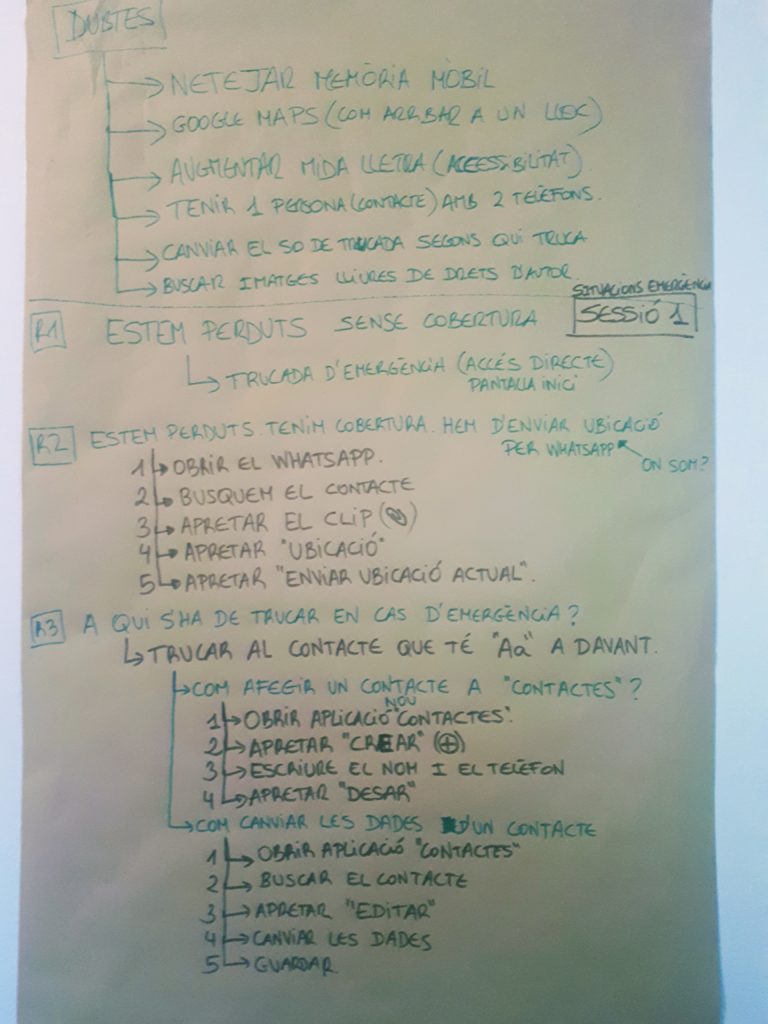 DUBTES
→ NETEJAR MEMÒRIA MÒBIL
→ GOOGLE MAPS (COM ARRIBAR A UN LLOC)
→ AUGMENTAR MIDA LLETRA (ACCESSIBILITAT)
→ TENIR 1 PERSONA (CONTACTE) AMB 2 TELÈFONS.
→ CANVIAR EL SO DE TRUCADA SEGONS QUI TRUCA
→ BUSCAR IMATGES LLIURES DE DRETS D'AUTOR
SITUACIONS EMERGÈNCIA
SESSIÓ 1
R1 ESTEM PERDUTS SENSE COBERTURA
↳ TRUCADA D'EMERGÈNCIA (ACCÉS DIRECTE)
PANTALLA INICI
R2 ESTEM PERDUTS. TENIM COBERTURA. HEM D'ENVIAR UBICACIÓ
PER WHATSAPP
ON SOM?
1 → OBRIR EL WHATSAPP.
2 → BUSQUEM EL CONTACTE
3 → APRETAR EL CLIP (📎)
4 → APRETAR "UBICACIÓ"
5 → APRETAR "ENVIAR UBICACIÓ ACTUAL".
R3 A QUI S'HA DE TRUCAR EN CAS D'EMERGÈNCIA?
↳ TRUCAR AL CONTACTE QUE TÉ "Aa" A DAVANT.
→ COM AFEGIR UN CONTACTE NOU A "CONTACTES"?
1 → OBRIR APLICACIÓ "CONTACTES".
2 → APRETAR "CREAR" (⊕)
3 → ESCRIURE EL NOM I EL TELÈFON
4 → APRETAR "DESAR"
→ COM CANVIAR LES DADES D'UN CONTACTE
1 → OBRIR APLICACIÓ "CONTACTES"
2 → BUSCAR EL CONTACTE
3 → APRETAR "EDITAR"
4 → CANVIAR LES DADES
5 → GUARDAR.